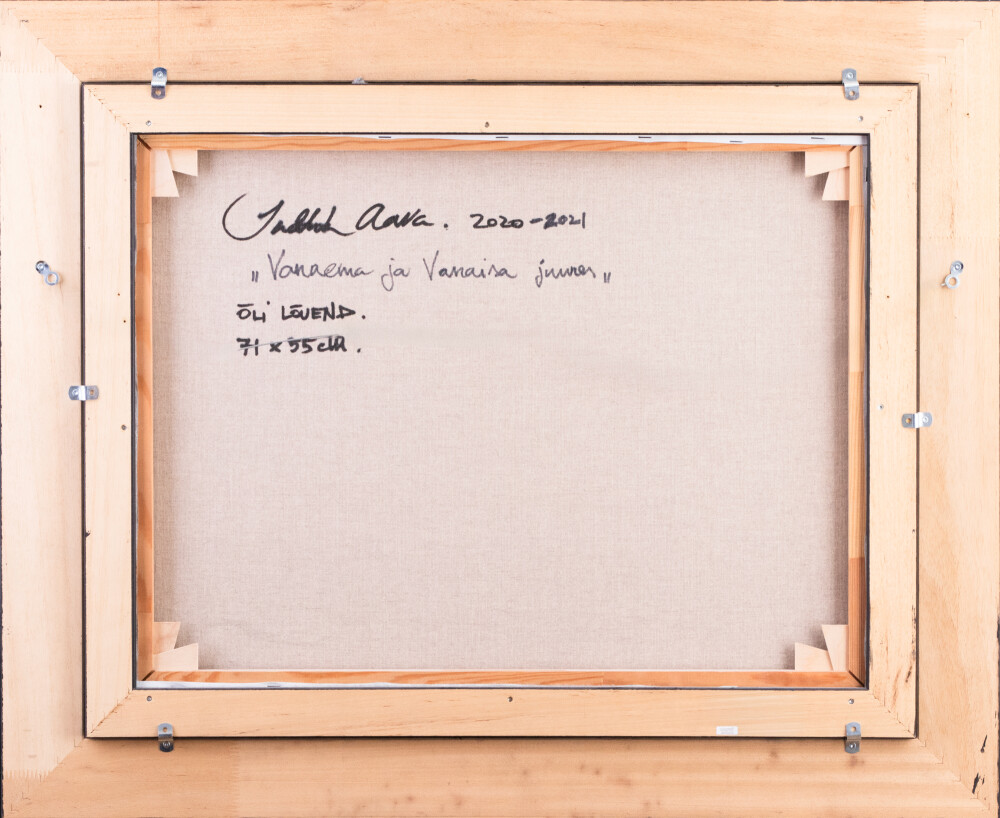 Aava. 2020-2021
„Vanaema ja Vanaisa juures„
ÕLI LÕUEND.
71 x 55 cm.